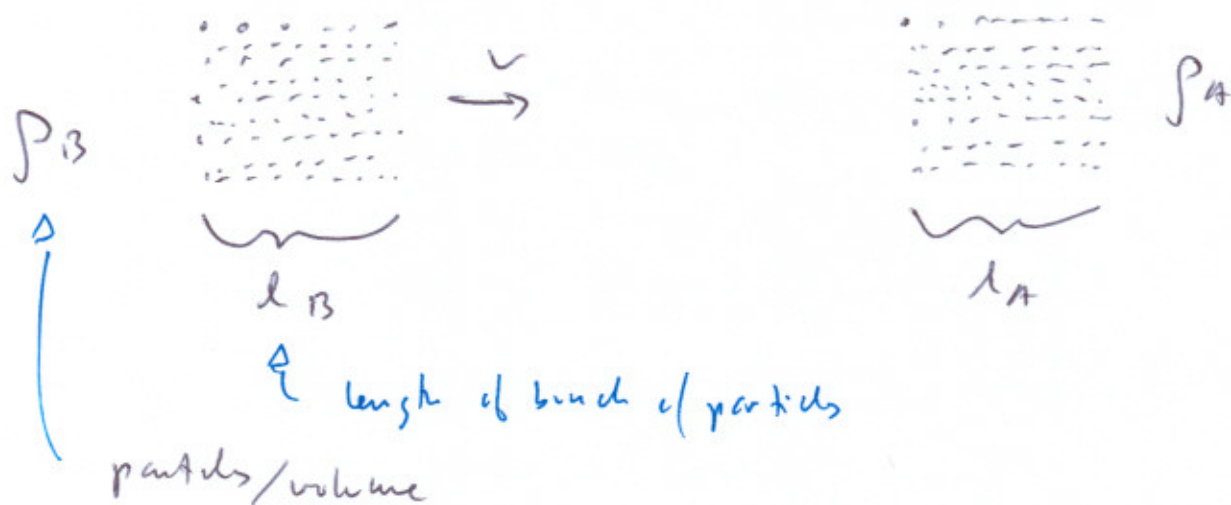 v
ρB
ρA
lB
lA
length of bunch of particles
particles/volume